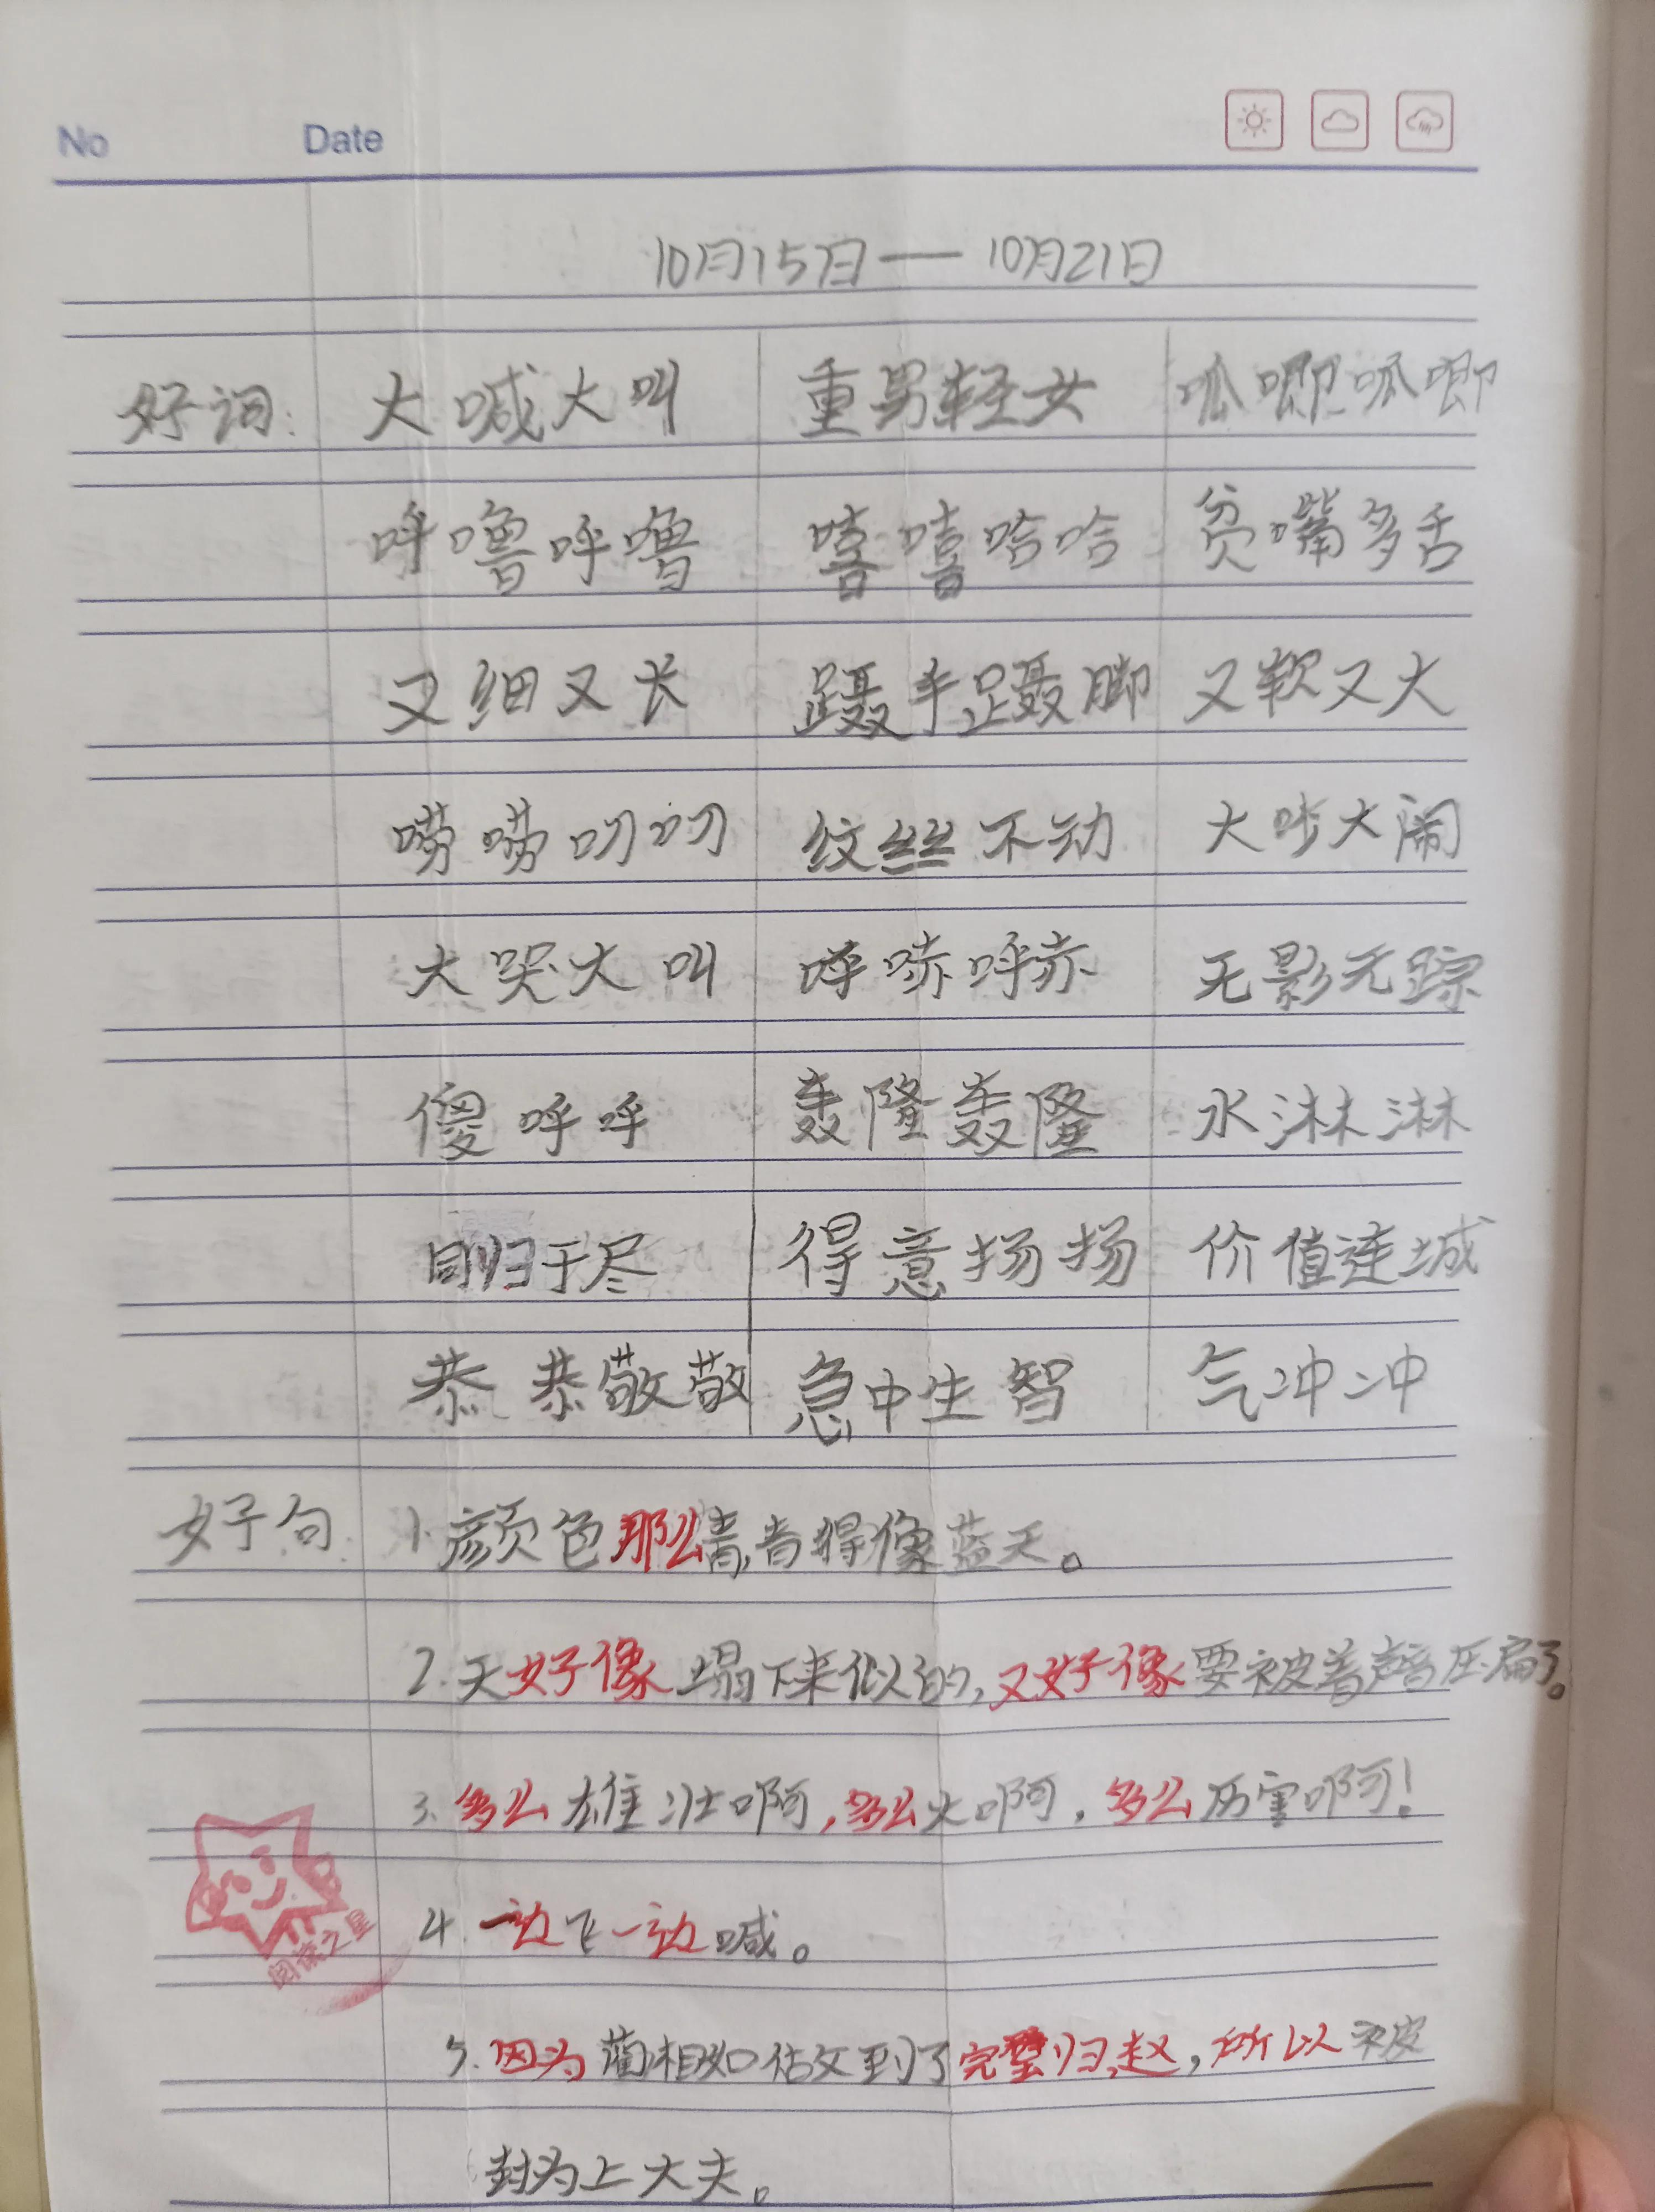 No Date
10月15日—10月21日
好词: 大喊大叫 重男轻女 呱唧呱唧
呼噜呼噜 嘻嘻哈哈 贫嘴多舌
又细又长 蹑手蹑脚 又软又大
唠唠叨叨 纹丝不动 大吵大闹
大哭大叫 呼哧呼赤 无影无踪
傻呼呼 轰隆轰隆 水淋淋
同归于尽 得意扬扬 价值连城
恭恭敬敬 急中生智 气冲冲
好句: 1.颜色那么青,青得像蓝天。
2.天好像塌下来似的,又好像要被着声音压扁了。
3.多么雄壮啊,多么火啊,多么厉害啊!
4.一边飞一边喊。
阅读之星
5.因为蔺相如做到了完璧归赵,所以被
封为上大夫。